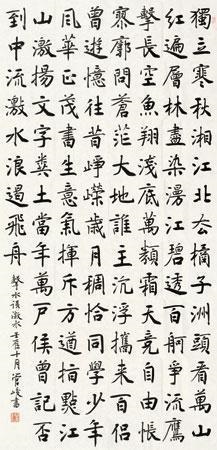 獨立寒秋湘江北厺橘子洲頭看萬山
紅遍層林盡染漫江碧透百舸争流鷹
擊長空魚翔淺底萬類霜天競自由悵
寥廓問蒼茫大地誰主沉浮攜來百侣
曾遊憶往昔崢嶸歲月稠恰同學少年
風華正茂書生意氣揮斥方遒指點江
山激揚文字糞土當年萬戶侯曾記否
到中流激水浪遏飛舟
擊水誤激水 十月管峻書